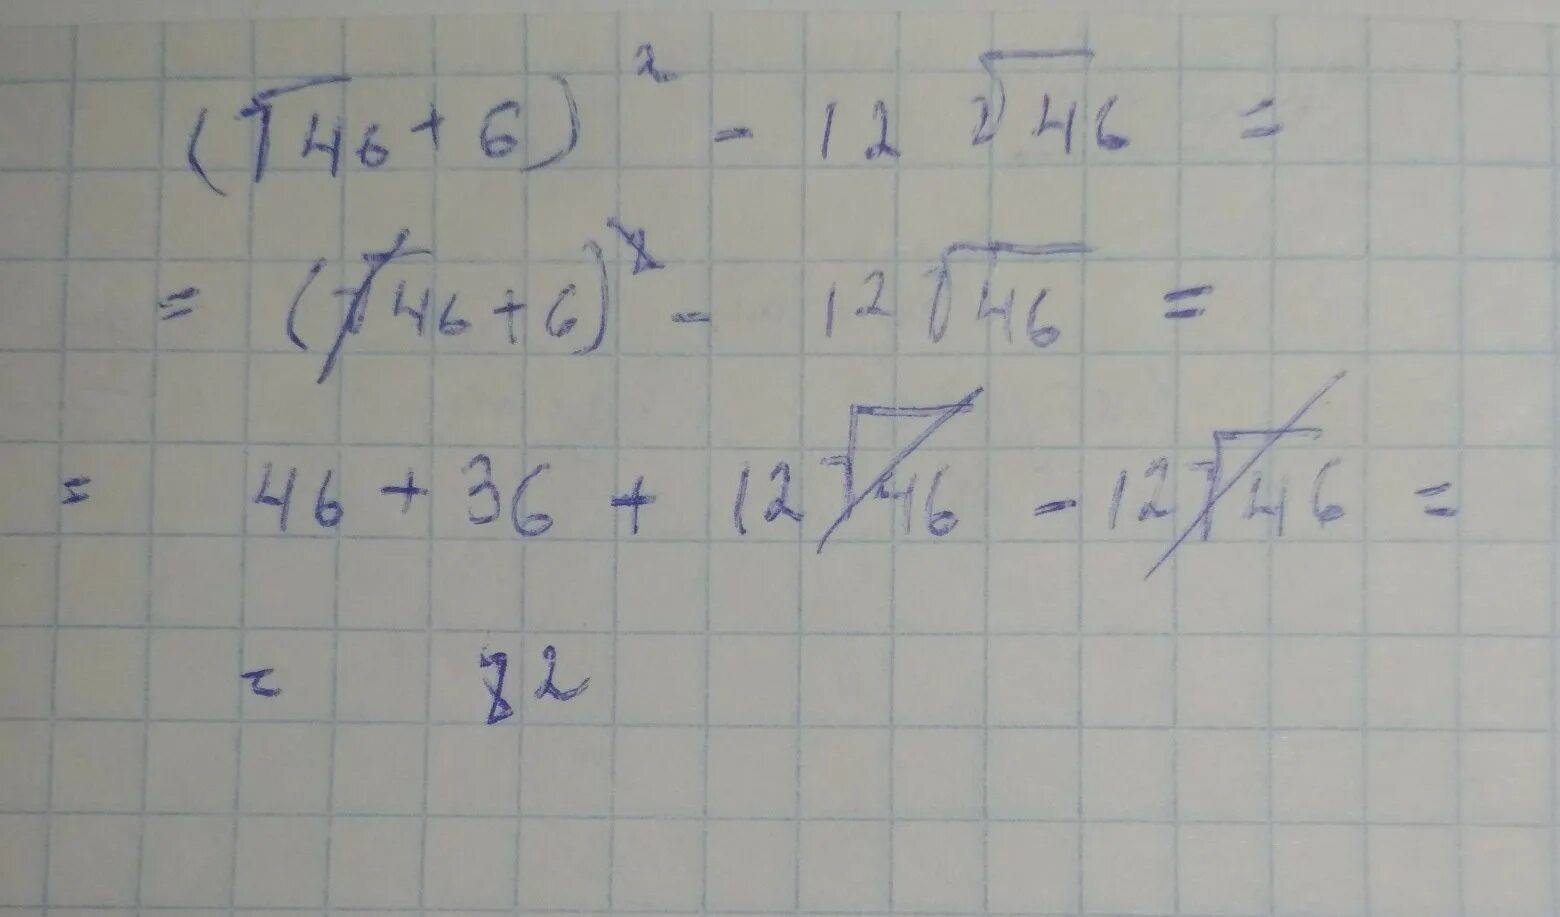 (√46 + 6)² - 12 √46 =
= (√46 + 6)² - 12 √46 =
= 46 + 36 + 12 √46 - 12 √46 =
= 82